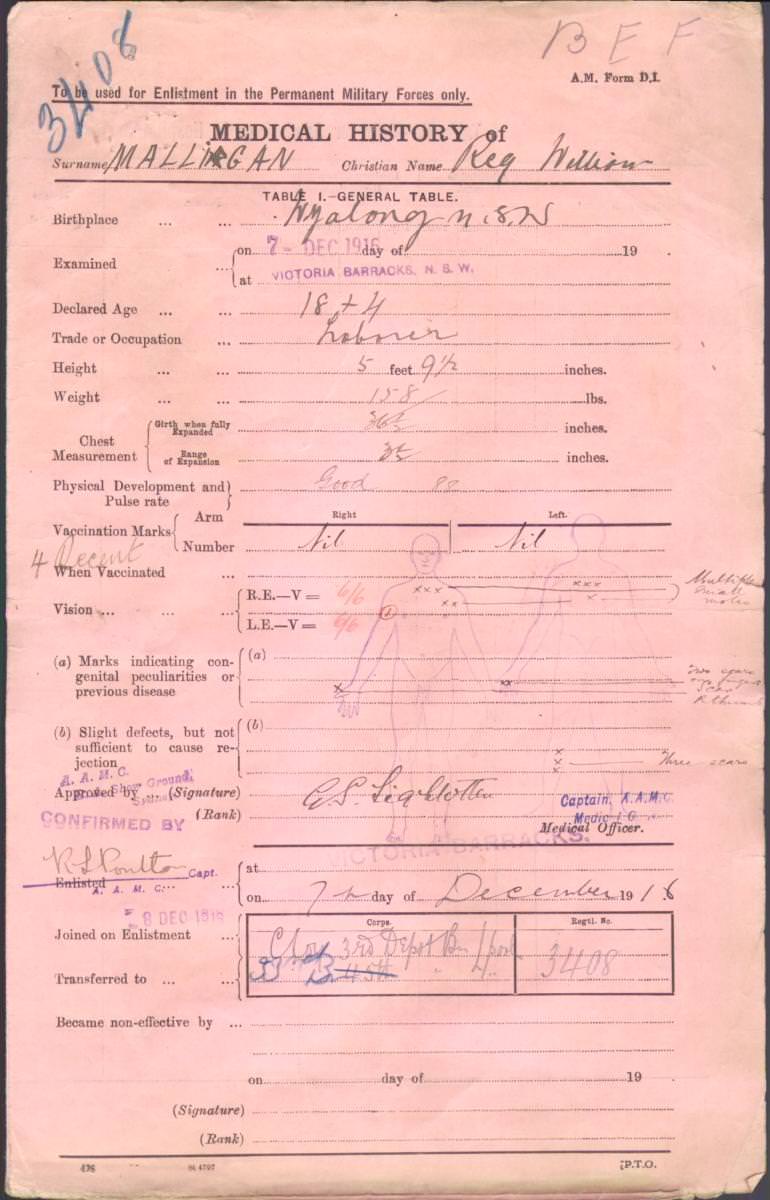 B E F
3408
A.M. Form D.I.
To be used for Enlistment in the Permanent Military Forces only.
MEDICAL HISTORY of
Surname MALLIGAN Christian Name Reg William
TABLE I.—GENERAL TABLE.
Birthplace ... ... Wyalong N.S.W
Examined ... on 7- DEC 1916 day of 19
at VICTORIA BARRACKS, N.S.W.
Declared Age ... ... 18 + 4
Trade or Occupation ... Laborer
Height ... ... 5 feet 9½ inches.
Weight ... ... 158 lbs.
Chest Measurement
Girth when fully Expanded 36½ inches.
Range of Expansion inches.
Physical Development and Pulse rate Good 88
Vaccination Marks
Arm Right Left.
Number Nil Nil
4 Recent
When Vaccinated ...
Vision ... ...
R.E.—V = 6/6
L.E.—V = 6/6
Multiple small moles
(a) Marks indicating congenital peculiarities or previous disease
(a)
Two scars
scar
R thumb
(b) Slight defects, but not sufficient to cause rejection
(b)
Three scars
A. A. M. C.
Show Ground,
Sydney
Approved by ... (Signature)
(Rank) Captain, A.A.M.C.
Medical Officer.
CONFIRMED BY
VICTORIA BARRACKS.
R L Poulton Capt.
A. A. M. C.
Enlisted ... ... at
on 7th day of December 1916
8 DEC 1916
Corps. Regtl. No.
Joined on Enlistment ... C Coy 3rd Depot Bn L/pool 3408
Transferred to ... ... B 45th
Became non-effective by ...
on day of 19 .
(Signature)
(Rank)
P.T.O.